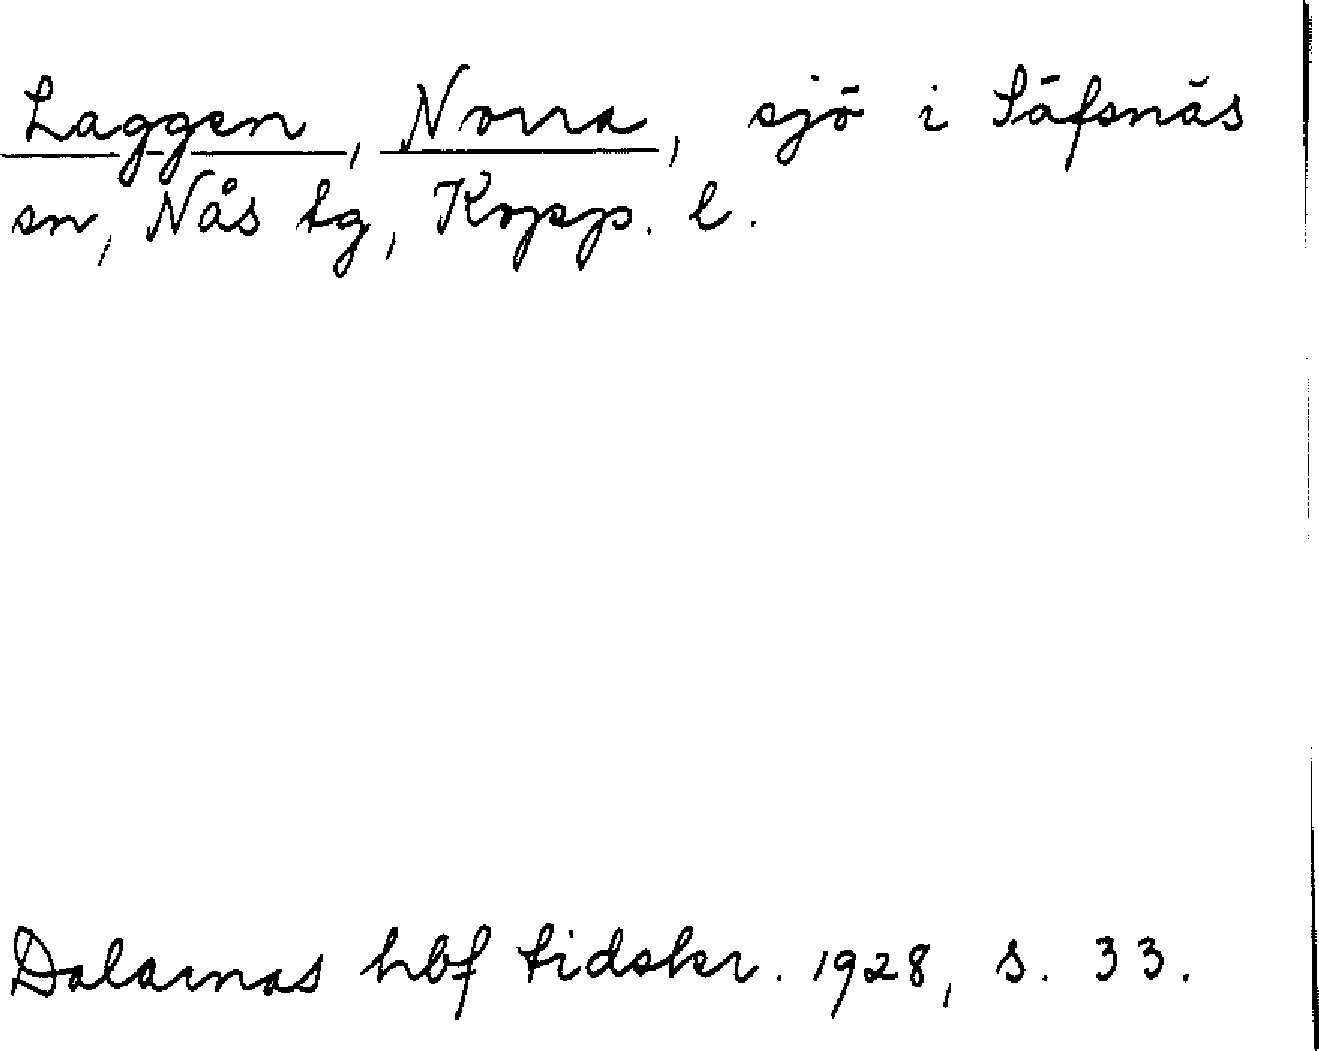 Laggen, Norra, sjö i Säfsnäs
sn, Nås tg, Kopp. l.
Dalarnas hbf tidskr. 1928, s. 33.